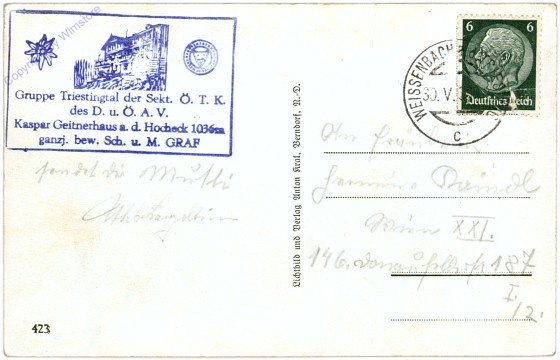 Copyright by Wimstore
Gruppe Triestingtal der Sekt. Ö. T. K.
des D. u. Ö. A. V.
Kaspar Geitnerhaus a. d. Hocheck 1036m
ganzj. bew. Sch. u. M. GRAF
sendet die Mutti
423
Lichtbild und Verlag Anton Kral, Berndorf, N.-D.
6 6
Deutsches Reich
WEISSENBACH
30. V.
c
An Fräulein
Hermine
Wien XXI.
146. 187
I.
12.